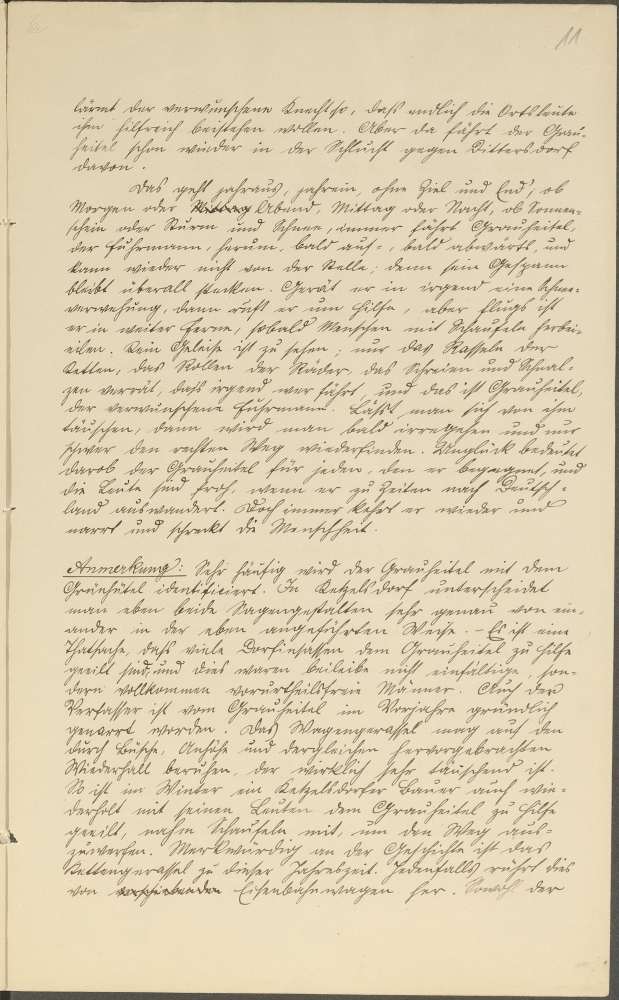 11
lärmt der verwunschene Knecht so, daß endlich die Ortsleute
ihm hilfreich beistehen wollen. Aber da fährt der Grau-
heitel schon wieder in der Schlucht gegen Dittersdorf
davon.
Das geht jahraus, jahrein, ohne Ziel und End', ob
Morgen oder Abend, Mittag oder Nacht, ob Sonnen-
schein oder Sturm und Schnee, immer fährt Grauheitel,
der Fuhrmann, herum, bald auf-, bald abwärts, und
kann wieder nicht von der Stelle; denn sein Gespann
bleibt überall stecken. Gerät er in irgend eine Schnee-
verwehung, dann ruft er um Hilfe, aber flugs ist
er in weiter Ferne, sobald Menschen mit Schaufeln herbei-
eilen. Kein Geleise ist zu sehen; nur das Rasseln der
Ketten, das Rollen der Räder, das Schreien und Schnal-
zen verrät, daß irgend wer fährt, und das ist Grauheitel,
der verwunschene Fuhrmann. Läßt man sich von ihm
täuschen, dann wird man bald irregehen und nur
schwer den rechten Weg wiederfinden. Unglück bedeutet
darob der Grauheitel für jeden, den er begegnet, und
die Leute sind froh, wenn er zu Zeiten nach Deutsch-
land auswandert. Doch immer kehrt er wieder und
narrt und schreckt die Menschheit.
Anmerkung: Sehr häufig wird der Grauheitel mit dem
Grünhütel identificiert. In Ketzelsdorf unterscheidet
man eben beide Sagengestalten sehr genau von ein-
ander in der eben angeführten Weise. – Es ist eine
Thatsache, daß viele Dorfinsassen dem Grauheitel zu Hilfe
geeilt sind, und dies waren beileibe nicht einfältige, son-
dern vollkommen vorurtheilsfreie Männer. Auch der
Verfasser ist vom Grauheitel im Vorjahre gründlich
genarrt worden. Das Wagengerassel mag auf den
durch Büsche, Anhöhe und dergleichen hervorgebrachten
Wiederhall beruhen, der wirklich sehr täuschend ist.
So ist im Winter ein Ketzelsdorfer Bauer auch wie-
derholt mit seinen Leuten dem Grauheitel zu Hilfe
geeilt, nahm Schaufeln mit, um den Weg aus-
zuwerfen. Merkwürdig an der Geschichte ist das
Kettengerassel zu dieser Jahreszeit. Jedenfalls rührt dies
von Eisenbahnwagen her. Sowohl der